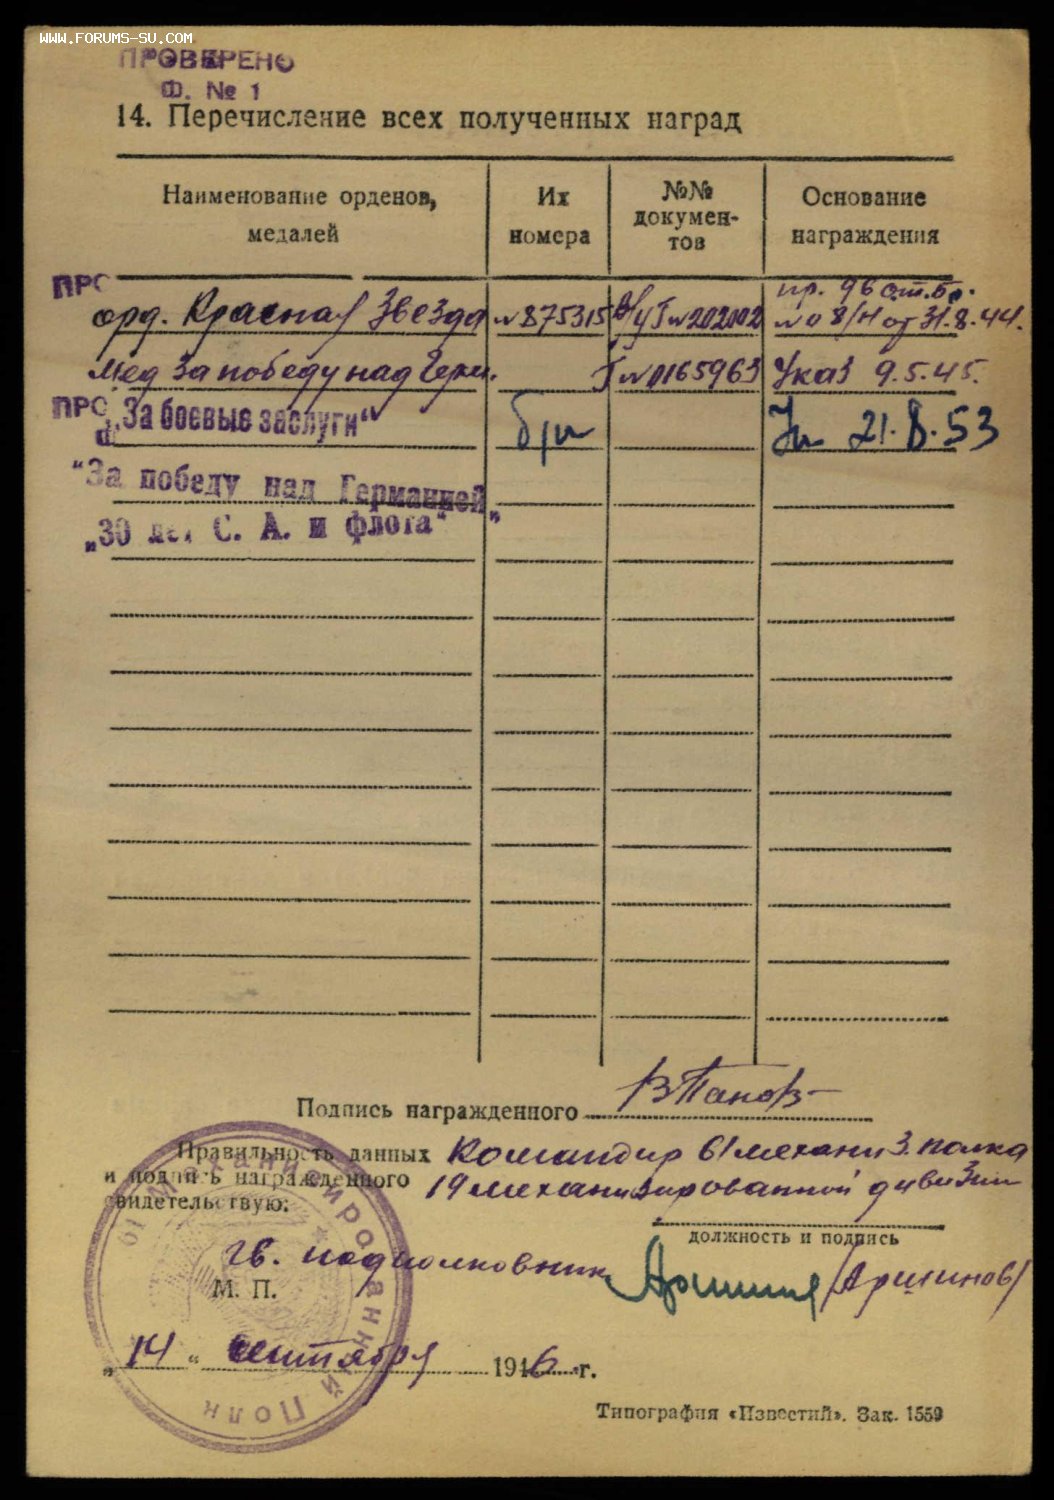 WWW.FORUMS-SU.COM
ПРОВЕРЕНО
Ф. № 1
14. Перечисление всех полученных наград
Наименование орденов, медалей
Их номера
№№ докумен-тов
Основание награждения
ПРО
орд. Красная Звезда №875315 № 202002 пр. 96 от.бр. №08/н от 31.8.44.
Мед За победу над Герм. №0165963 Указ 9.5.45.
ПРО
„За боевые заслуги“ б/н 21.8.53
“За победу над Германией„
„30 лет С. А. и флота“
Подпись награжденного ВПанов
Правильность данных Командир 61 механиз. полка
и подпись награжденного 19 механизированной дивизии
свидетельствую:
должность и подпись
гв. подполковник /Аршинов/
М. П.
„14“ сентября 1946 г.
61 Механизированный Полк
Типография «Известий». Зак. 1559